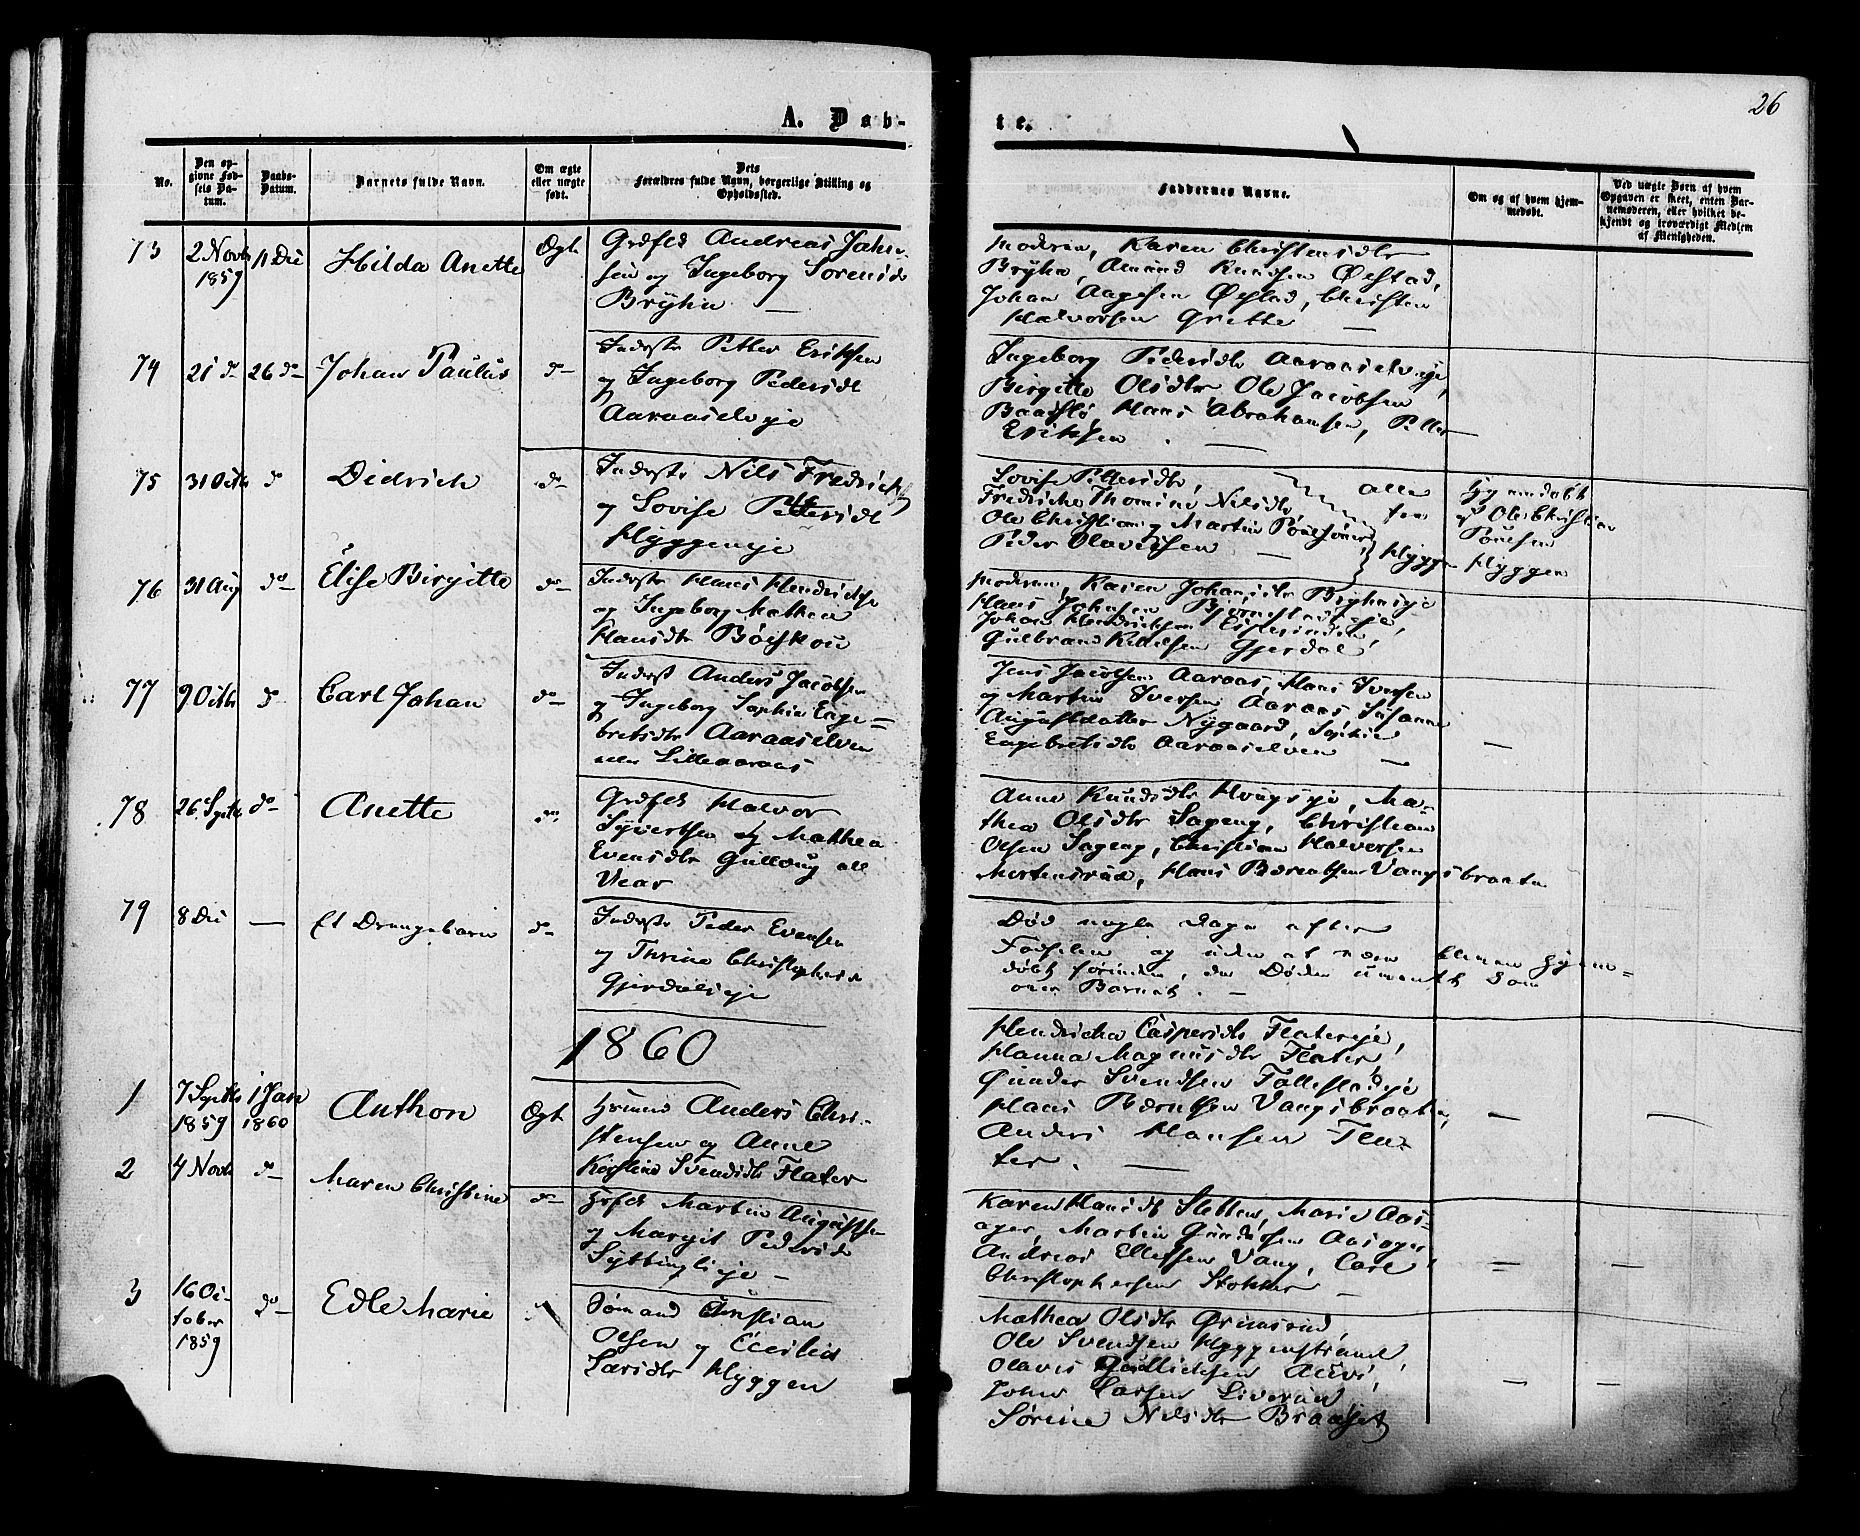 26
A. Døb-
te.
No.
Den op-
givne Fød-
sels Da-
tum.
Daabs-
Datum.
Barnets fulde Navn.
Om ægte
eller uægte
født.
Dets
Forældres fulde Navn, borgerlige Stilling og
Opholdssted.
Faddernes Navne.
Om og af hvem hjem-
medøbt.
Ved uægte Børn af hvem
Opgaven er skeet, enten Bar-
nemoderen, eller hvilket be-
kjendt og troværdigt Medlem
af Menigheden.
73
2 Novbr
1859
11 Dec
Hilda Anette
Ægt
Grdfd Andreas John-
sen og Ingeborg Sørensdr
Bryhn —
Moderen, Karen Christensdtr
Bryhn, Amund Knudsen Øfstad,
Johan Aagesen Øfstad, Christen
Halvorsen Grette —
74
21 do
26 do
Johan Paulus
do
Inderste Petter Eriksen
og Ingeborg Pedersdt
Aaraaselveje
Ingeborg Pedersdtr Aaraaselveje,
Birgitte Olsdtr Ole Jacobsen
Hans Abrahamsen, Petter
Eriksen. —
75
31 Octb
do
Didrich
do
Inderste Nils Fredrichs
og Lovise Pettersdt
Hyggeneje
Lovise Pettersdtr,
Fredricke Thomine Nilsdtr,
Ole Christian og Martin Poulsønner,
Peder Olavessen —
alle
fra
Hyggen
Hjemdøbt
af Ole Christian
Poulsen
Hyggen
76
31 Aug
do
Elise Birgitte
do
Inderste Hans Hendrichs
og Ingeborg Mathea
Hansdtr
Moderen, Karen Johansdtr Bryhnseje
Hans Johnsen
Johan Hendriksen
Gulbrand Gjerdal
77
9 Octbr
do
Carl Johan
do
Inderst Anders Jacobsen
og Ingeborg Sophie Enge=
bretsdtr Aaraaselven
Lilleaaraas
Jens Jacobsen Aaraas, Hans Iversen
og Martin Iversen Aaraas Susanne
Augustdatter Nygaard, Sophie
Engebretsdtr Aaraaselven
—
78
26 Septbr
do
Anette
do
Grdfd Halvor
Syvertsen og Mathea
Evensdtr Gulloug
Vear
Anne Knudsdtr Hougseje, Ma-
thea Olsdtr Sageng, Christian
Olsen Sageng, Christian Halvorsen
Mortensrud, Hans Berntsen Vangsbraaten
79
8 Dec
—
Et Drengebarn
do
Inderste Peder Evensen
og Thrine Christophersdt
Gjerdalseje
Død nogle Dage efter
Fødselen og uden at være bleven hjem=
døbt forinden, da Døden uventet kom
over Barnet. —
1860
1
7 Septbr
1859
1 Jan
1860
Anthon
Ægt
Anders Chri-
stensen og Anne
Kirstine Svendsdtr Flater
Hendricka Caspersdtr Flatereje,
Hanna Magnusdtr Flater
Gunder Svendsen Tollefsdeje
Hans Berntsen Vangsbraaten,
Anders Hansen Fla-
ter. —
—
—
2
4 Novbr
do
Maren Christine
do
Martin Augustsen
og Margit Pedersdt
Syttinglieje —
Karen Hansdt Sletten, Marie Aas-
ager, Martin Gundersen Aasager
Andreas Ellefsen Vang, Carl
Christophersen Stokker —
—
—
3
16 Oc-
tober
1859
do
Edle Marie
Sømand Christian
Olsen og Cecilia
Larsdtr Hyggen
Mathea Olsdtr Grimsrud,
Ole Svendsen Hyggenstrand
Olaves Gudlichsen Auvi,
Johan Larsen Liverud
Sørine Nilsdtr Braaset
—
—